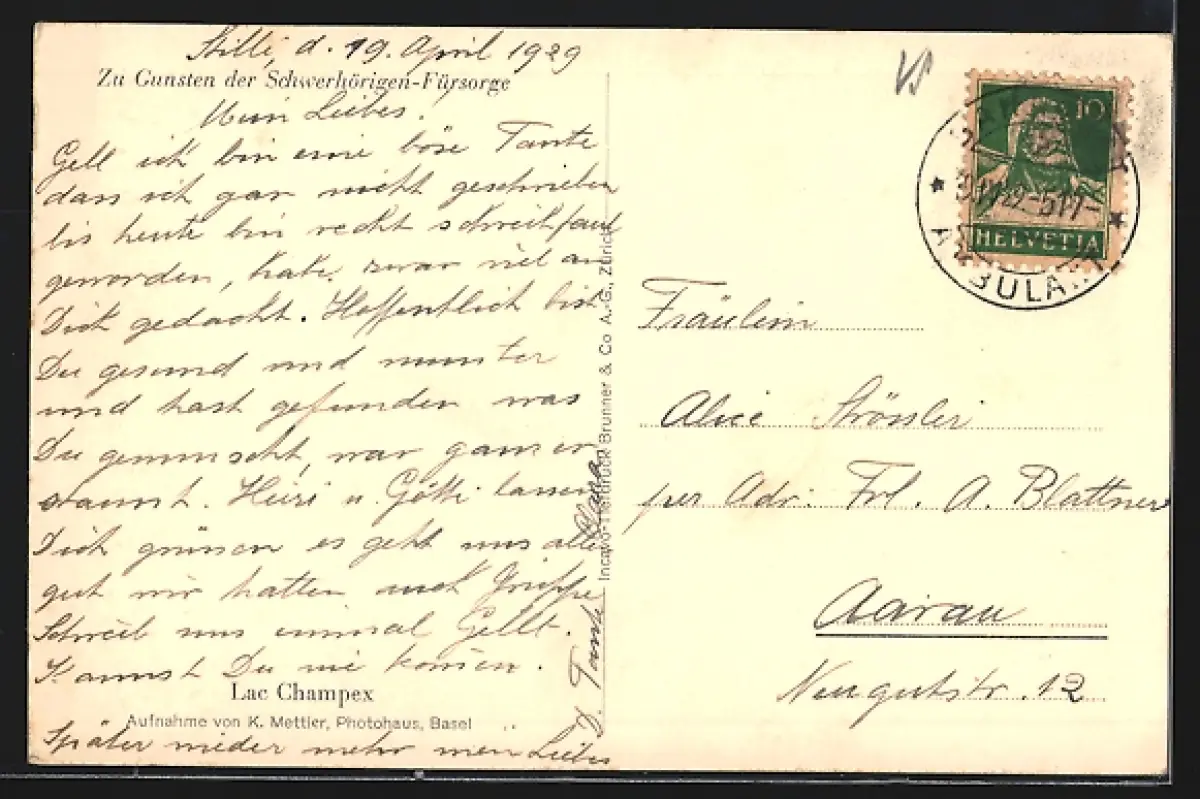 Stilli, d. 19. April 1929
Zu Gunsten der Schwerhörigen-Fürsorge
Mein Liebes!
Gell ich bin eine böse Tante
dass ich gar nicht geschrieben
bis heute bin recht schreibfaul
geworden, habe zwar viel an
Dich gedacht. Hoffentlich bist
Du gesund und munter
und hast gefunden was
Du gewünscht, war ganz er
staunt. Heiri u. Götti lassen
Dich grüssen es geht uns allen
gut wir hatten auch Grippe
Schreib uns einmal Gellt.
Kannst Du nie komen.
Lac Champex
Aufnahme von K. Mettler, Photohaus, Basel
Später wieder mehr mein Liebes
D. Tante Clara
Incavo-Tiefdruck Brunner & Co A.-G., Zürich
10
HELVETIA
AMBULANT
Fräulein
Alice Strössler
per Adr. Frl. A. Blattner
Aarau
Neugutstr. 12